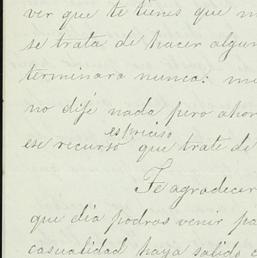 ver que te tienes que m
se trata de hacer algun
terminara nunca: me
no dije nada pero ahor
es priciso
ese recurso que trate de
Te agradecer
que dia podras venir pa
casualidad haya salido